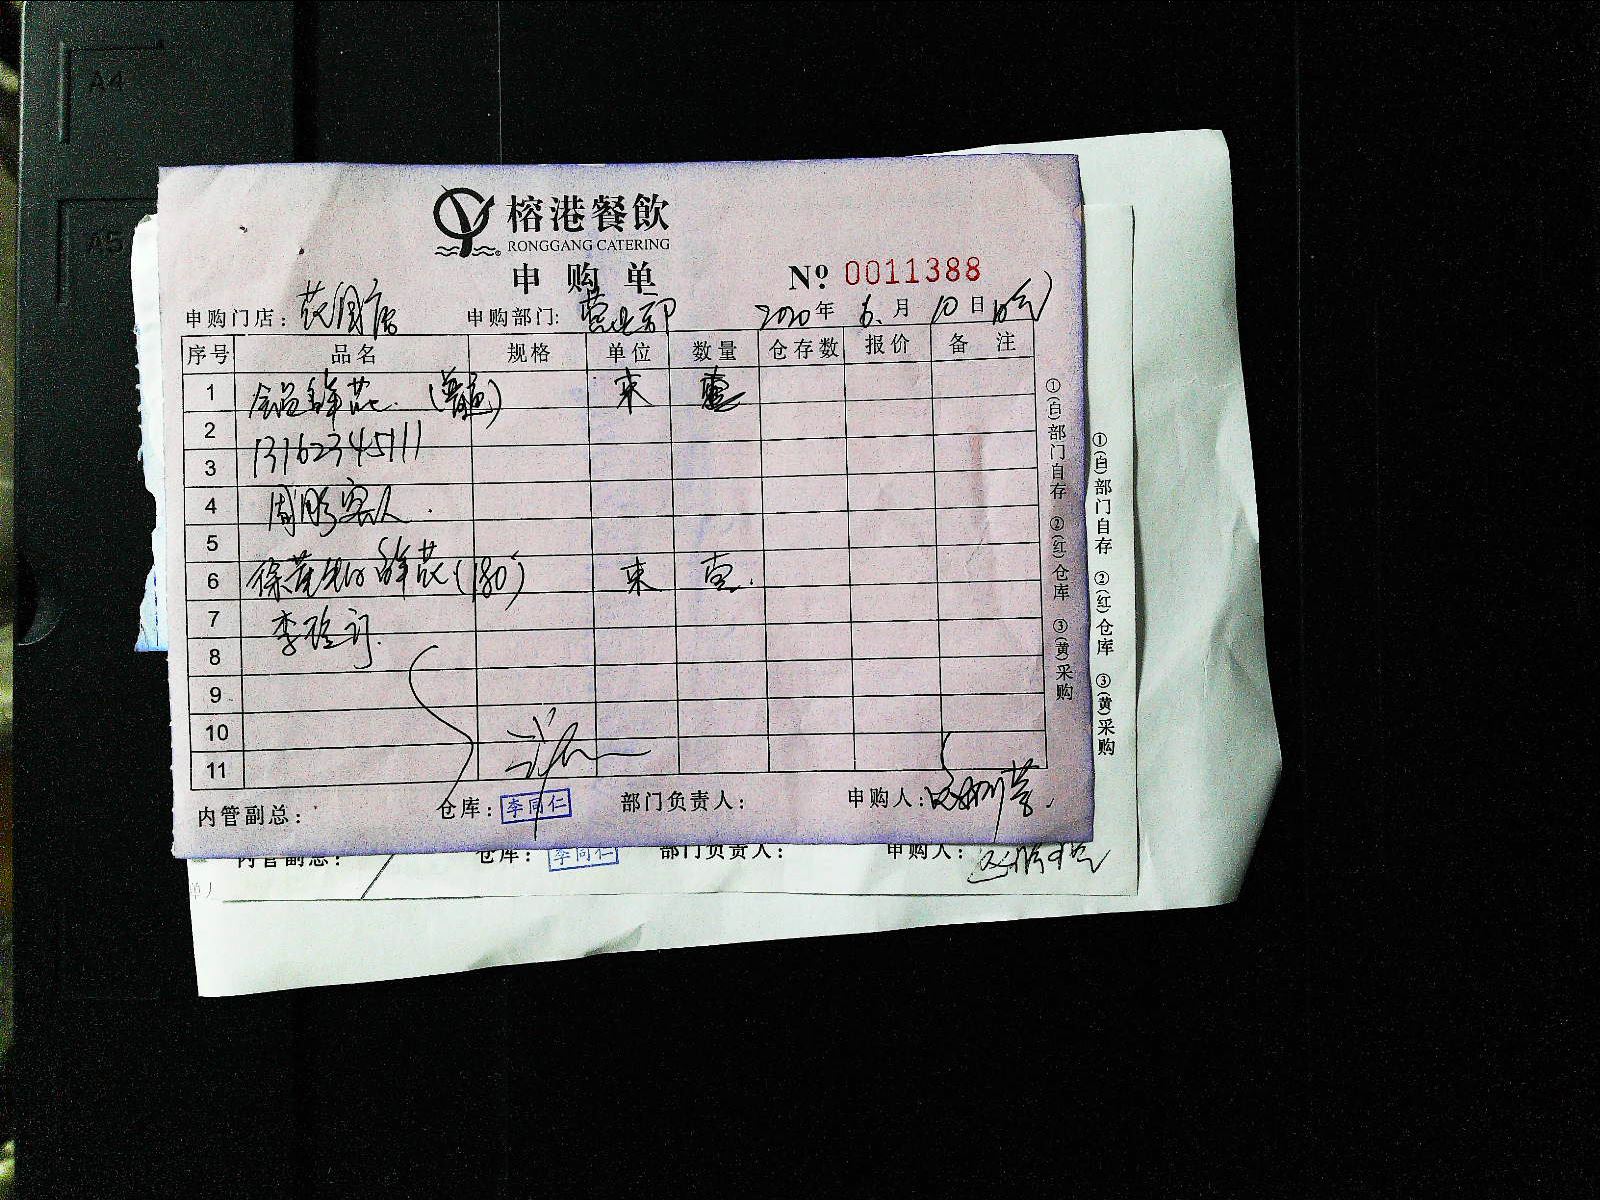 A4
A5
榕港餐飲
RONGGANG CATERING
申购单 Nº 0011388
申购门店: 店 申购部门: 营业部 2020年 6月 10日
序号 品名 规格 单位 数量 仓存数 报价 备注
1 鲜花 (普通) 束 壹
2 13162345111
3
4 客人
5
6 鲜花 (180) 束 壹
7 李 订
8
9
10
11
内管副总: 仓库: 李同仁 部门负责人: 申购人:
①(白)部门自存 ②(红)仓库 ③(黄)采购
①(白)部门自存 ②(红)仓库 ③(黄)采购
内管副总: 仓库: 李同仁 部门负责人: 申购人: